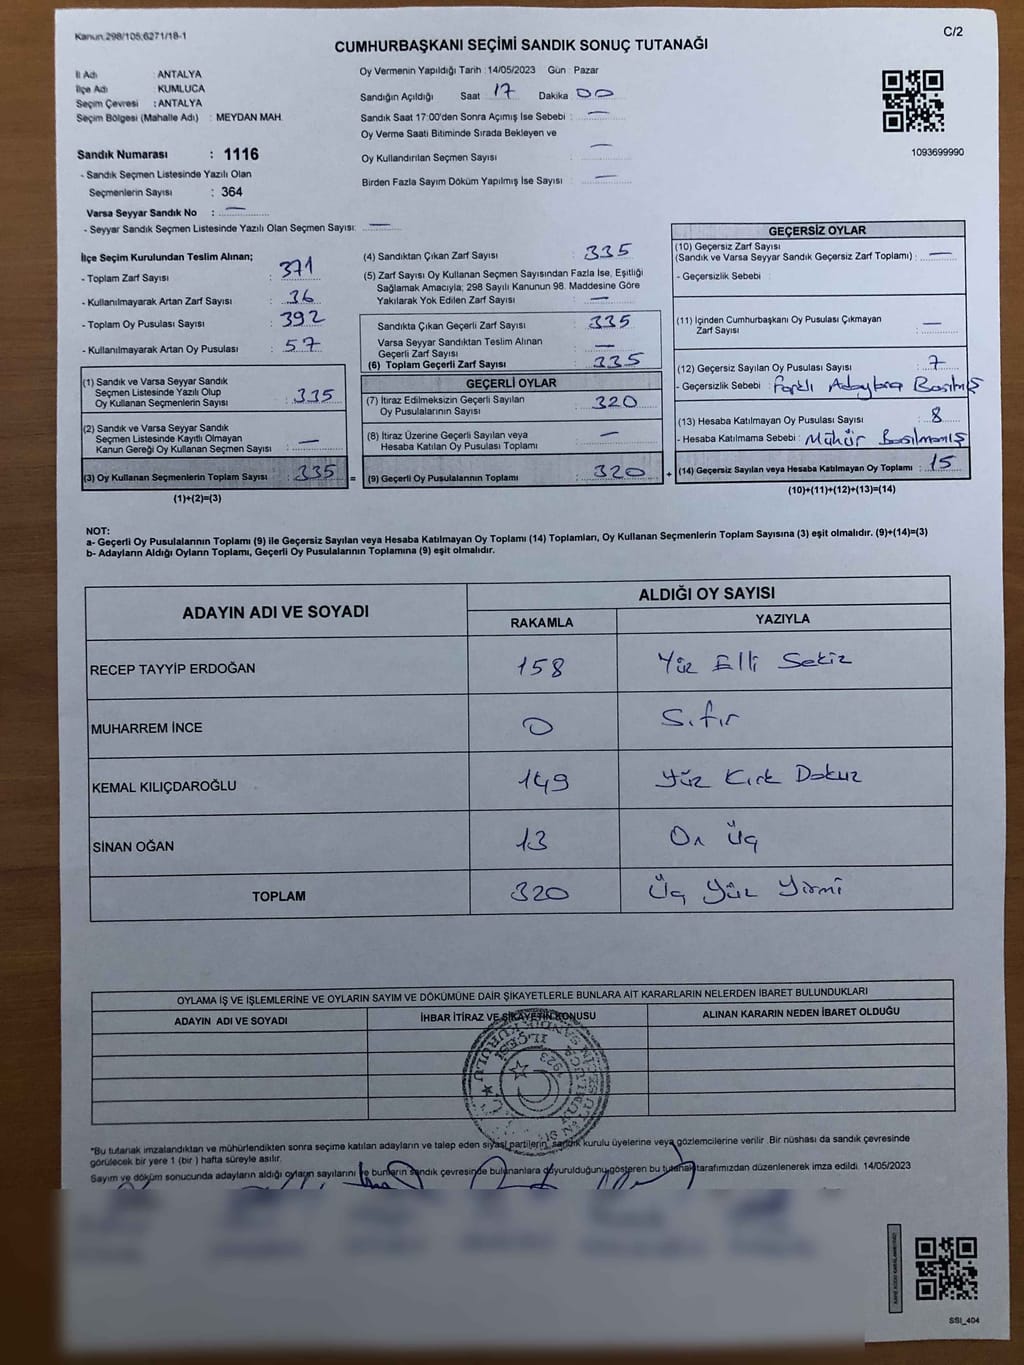 Kanun.298/105,6271/18-1
C/2
CUMHURBAŞKANI SEÇİMİ SANDIK SONUÇ TUTANAĞI
İl Adı : ANTALYA
İlçe Adı : KUMLUCA
Seçim Çevresi : ANTALYA
Seçim Bölgesi (Mahalle Adı) : MEYDAN MAH.
Sandık Numarası : 1116
- Sandık Seçmen Listesinde Yazılı Olan
Seçmenlerin Sayısı : 364
Varsa Seyyar Sandık No : —
- Seyyar Sandık Seçmen Listesinde Yazılı Olan Seçmen Sayısı: —
Oy Vermenin Yapıldığı Tarih : 14/05/2023 Gün : Pazar
Sandığın Açıldığı Saat 17 Dakika 00
Sandık Saat 17:00'den Sonra Açımış İse Sebebi : —
Oy Verme Saati Bitiminde Sırada Bekleyen ve
Oy Kullandırılan Seçmen Sayısı : —
Birden Fazla Sayım Döküm Yapılmış İse Sayısı : —
1093699990
İlçe Seçim Kurulundan Teslim Alınan;
- Toplam Zarf Sayısı : 371
- Kullanılmayarak Artan Zarf Sayısı : 36
- Toplam Oy Pusulası Sayısı : 392
- Kullanılmayarak Artan Oy Pusulası : 57
(1) Sandık ve Varsa Seyyar Sandık
Seçmen Listesinde Yazılı Olup
Oy Kullanan Seçmenlerin Sayısı : 335
(2) Sandık ve Varsa Seyyar Sandık
Seçmen Listesinde Kayıtlı Olmayan
Kanun Gereği Oy Kullanan Seçmen Sayısı : —
(3) Oy Kullanan Seçmenlerin Toplam Sayısı : 335
(1)+(2)=(3)
(4) Sandıktan Çıkan Zarf Sayısı : 335
(5) Zarf Sayısı Oy Kullanan Seçmen Sayısından Fazla İse, Eşitliği
Sağlamak Amacıyla; 298 Sayılı Kanunun 98. Maddesine Göre
Yakılarak Yok Edilen Zarf Sayısı : —
Sandıkta Çıkan Geçerli Zarf Sayısı : 335
Varsa Seyyar Sandıktan Teslim Alınan
Geçerli Zarf Sayısı : —
(6) Toplam Geçerli Zarf Sayısı : 335
=
GEÇERLİ OYLAR
(7) İtiraz Edilmeksizin Geçerli Sayılan
Oy Pusulalarının Sayısı : 320
(8) İtiraz Üzerine Geçerli Sayılan veya
Hesaba Katılan Oy Pusulası Toplamı : —
(9) Geçerli Oy Pusulalarının Toplamı : 320
+
GEÇERSİZ OYLAR
(10) Geçersiz Zarf Sayısı
(Sandık ve Varsa Seyyar Sandık Geçersiz Zarf Toplamı) : —
- Geçersizlik Sebebi :
(11) İçinden Cumhurbaşkanı Oy Pusulası Çıkmayan
Zarf Sayısı : —
(12) Geçersiz Sayılan Oy Pusulası Sayısı : 7
- Geçersizlik Sebebi : Farklı Adaylara Basılmış
(13) Hesaba Katılmayan Oy Pusulası Sayısı : 8
- Hesaba Katılmama Sebebi : Mühür Basılmamış
(14) Geçersiz Sayılan veya Hesaba Katılmayan Oy Toplamı : 15
(10)+(11)+(12)+(13)=(14)
NOT:
a- Geçerli Oy Pusulalarının Toplamı (9) ile Geçersiz Sayılan veya Hesaba Katılmayan Oy Toplamı (14) Toplamları, Oy Kullanan Seçmenlerin Toplam Sayısına (3) eşit olmalıdır. (9)+(14)=(3)
b- Adayların Aldığı Oyların Toplamı, Geçerli Oy Pusulalarının Toplamına (9) eşit olmalıdır.
ADAYIN ADI VE SOYADI
ALDIĞI OY SAYISI
RAKAMLA YAZIYLA
RECEP TAYYİP ERDOĞAN 158 Yüz Elli Sekiz
MUHARREM İNCE 0 Sıfır
KEMAL KILIÇDAROĞLU 149 Yüz Kırk Dokuz
SİNAN OĞAN 13 On Üç
TOPLAM 320 Üç Yüz Yirmi
OYLAMA İŞ VE İŞLEMLERİNE VE OYLARIN SAYIM VE DÖKÜMÜNE DAİR ŞİKAYETLERLE BUNLARA AİT KARARLARIN NELERDEN İBARET BULUNDUKLARI
ADAYIN ADI VE SOYADI İHBAR İTİRAZ VE ŞİKAYETİN KONUSU ALINAN KARARIN NEDEN İBARET OLDUĞU
1923
*Bu tutanak imzalandıktan ve mühürlendikten sonra seçime katılan adayların ve talep eden siyasi partilerin, sandık kurulu üyelerine veya gözlemcilerine verilir. Bir nüshası da sandık çevresinde
görülecek bir yere 1 (bir) hafta süreyle asılır.
Sayım ve döküm sonucunda adayların aldığı oyların sayılarını ve bunların sandık çevresinde bulunanlara duyurulduğunu gösteren bu tutanak tarafımızdan düzenlenerek imza edildi. 14/05/2023
SSI_404